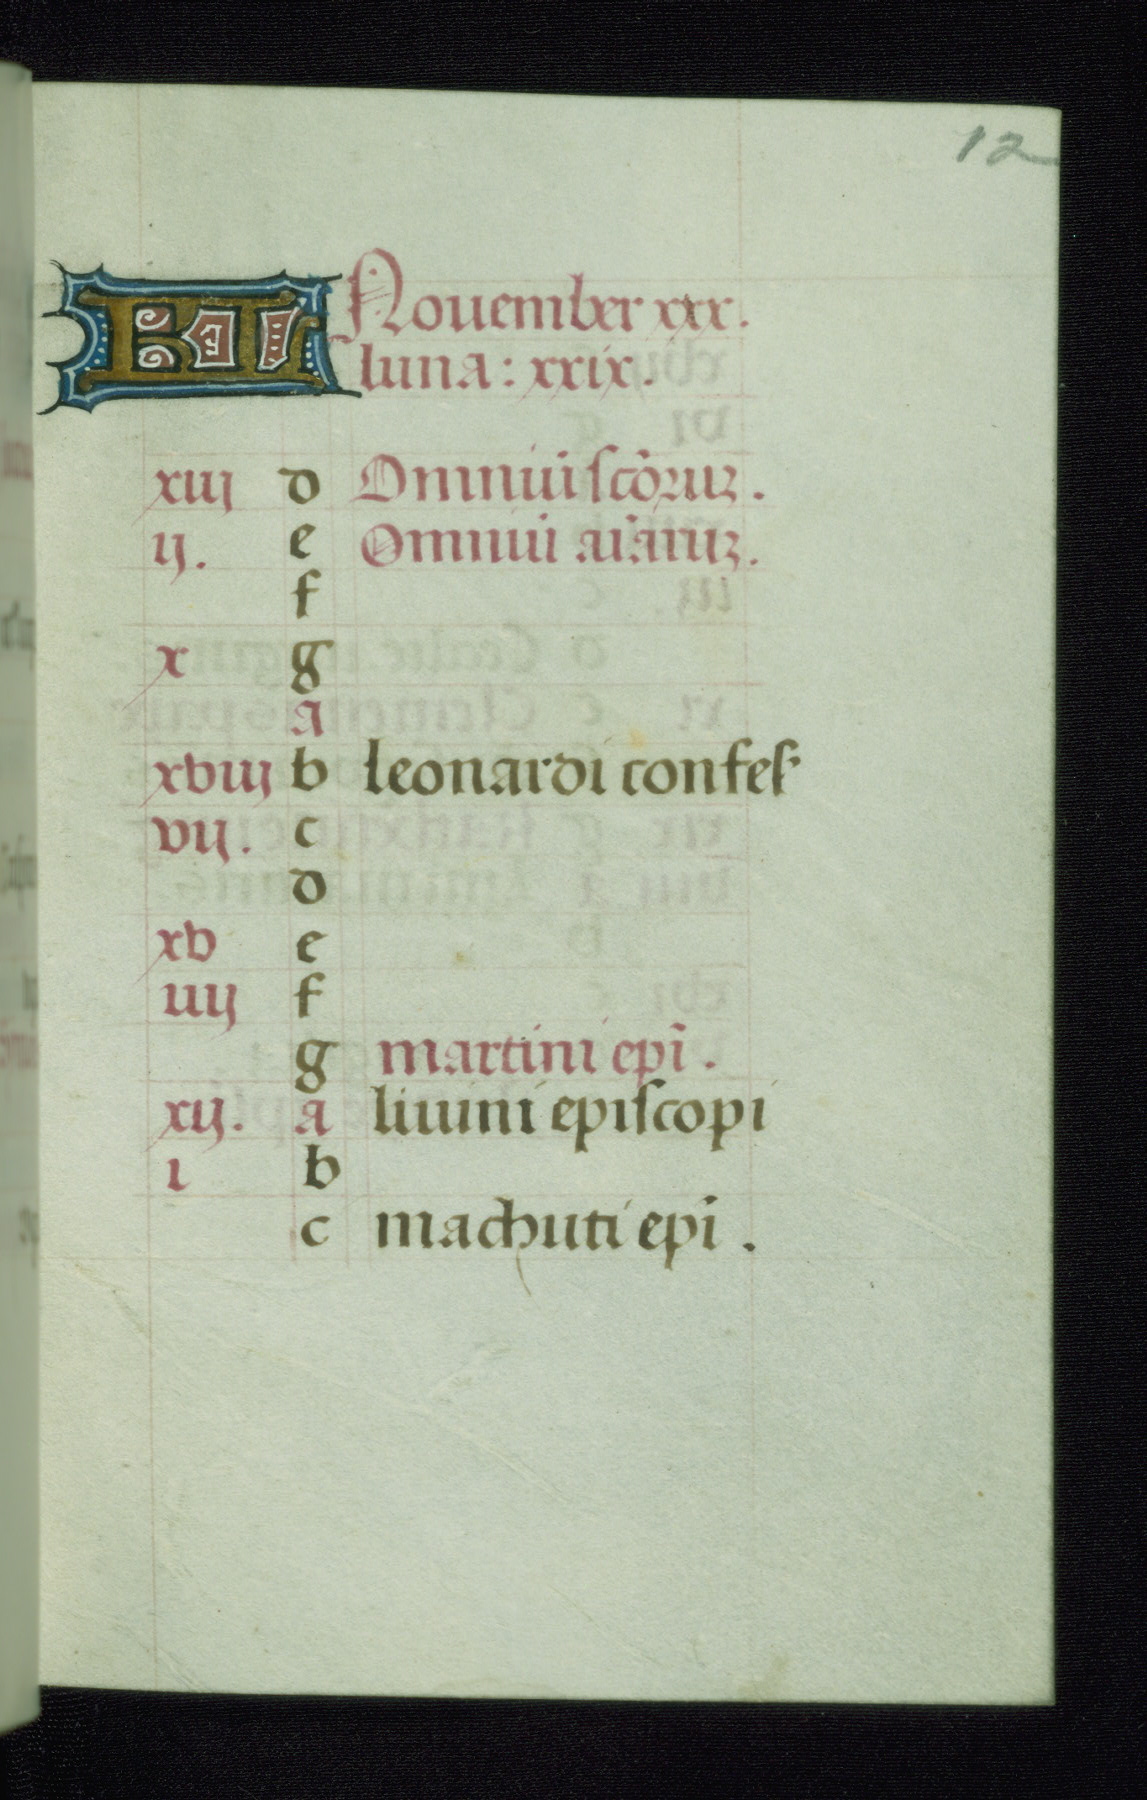 12
KL November xxx.
luna: xxix.
xiij d Omniũ sctõrũꝫ.
ij. e Omniũ aĩarũꝫ.
f
x g
a
xviij b leonardi confeſ
vij. c
d
xv e
iiij f
g martini epĩ.
xij. a liuini epiſcopi
i b
c machuti epĩ.